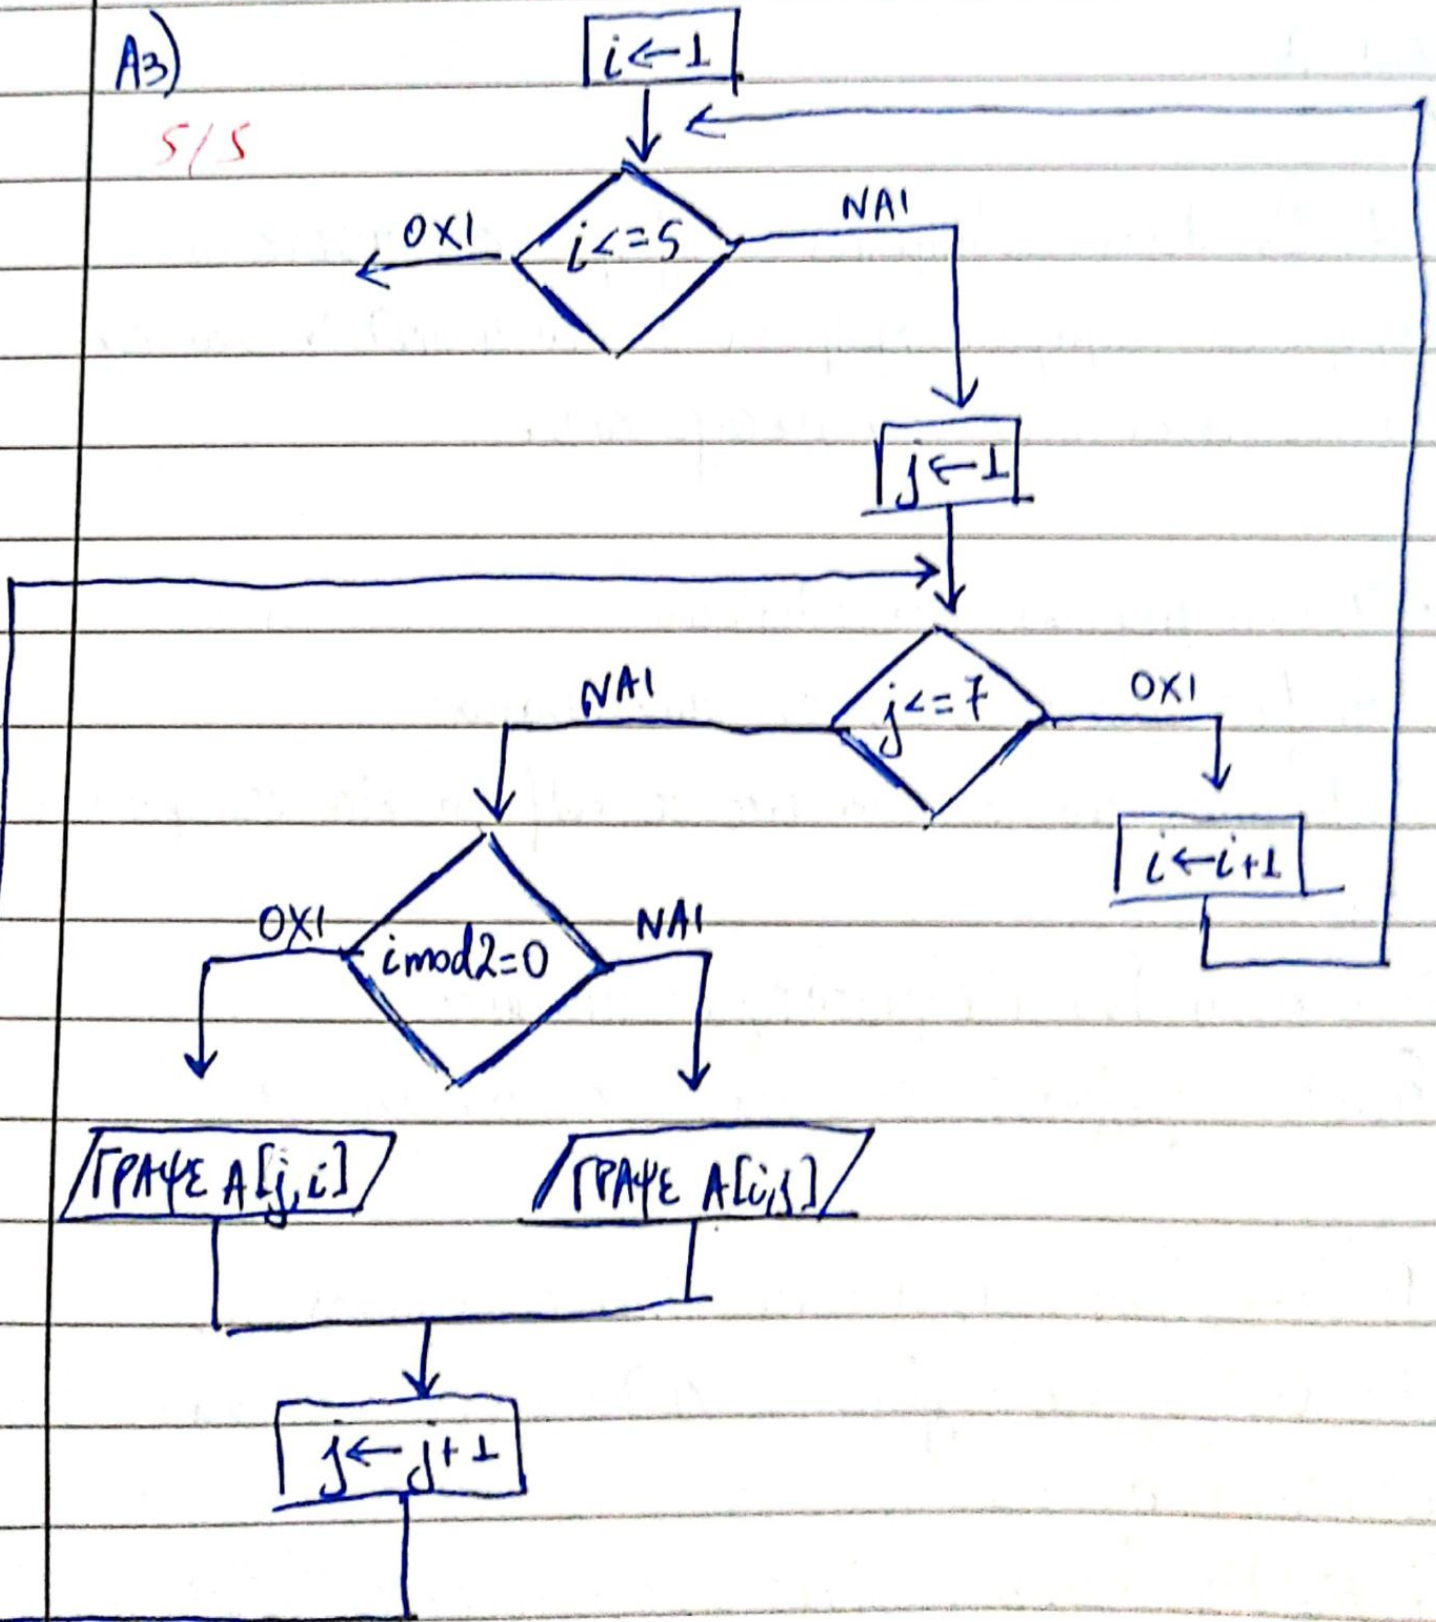 Α3)
i←1
5/5
ΟΧΙ
i<=5
ΝΑΙ
j←1
ΝΑΙ
j<=7
ΟΧΙ
i←i+1
ΟΧΙ
i mod2=0
ΝΑΙ
ΓΡΑΨΕ Α[j,i]
ΓΡΑΨΕ Α[i,j]
j←j+1